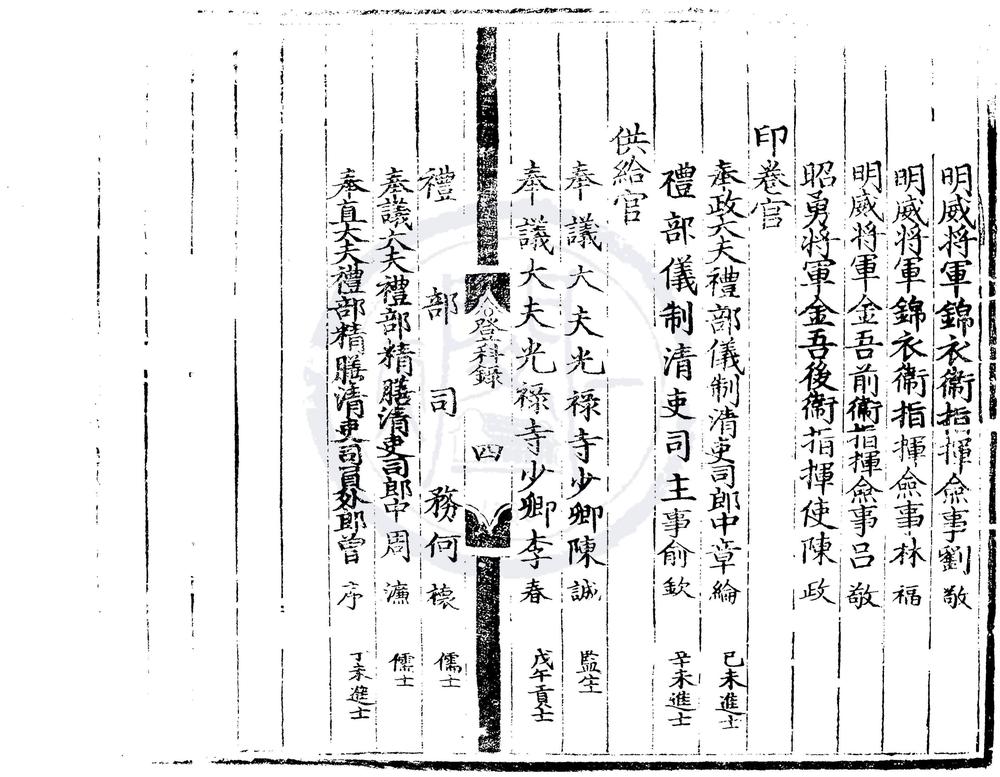 明威将軍錦衣衞指揮僉事劉敬
明威将軍錦衣衞指揮僉事林福
明威将軍金吾前衞指揮僉事吕敬
昭勇将軍金吾後衞指揮使陳政
印卷官
奉政大夫禮部儀制清吏司郎中章綸 己未進士
禮部儀制清吏司主事俞欽 辛未進士
供給官
奉議大夫光禄寺少卿陳誠 監生
奉議大夫光禄寺少卿李春 戊午貢士
登科錄 四
禮部司務何 儒士
奉議大夫禮部精膳清吏司郎中周濂 儒士
奉直大夫禮部精膳清吏司員外郎曾序 丁未進士